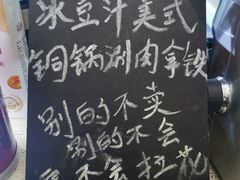 冰豆汁美式
铜锅涮肉拿铁
别的不卖
别的不会
不会拉花